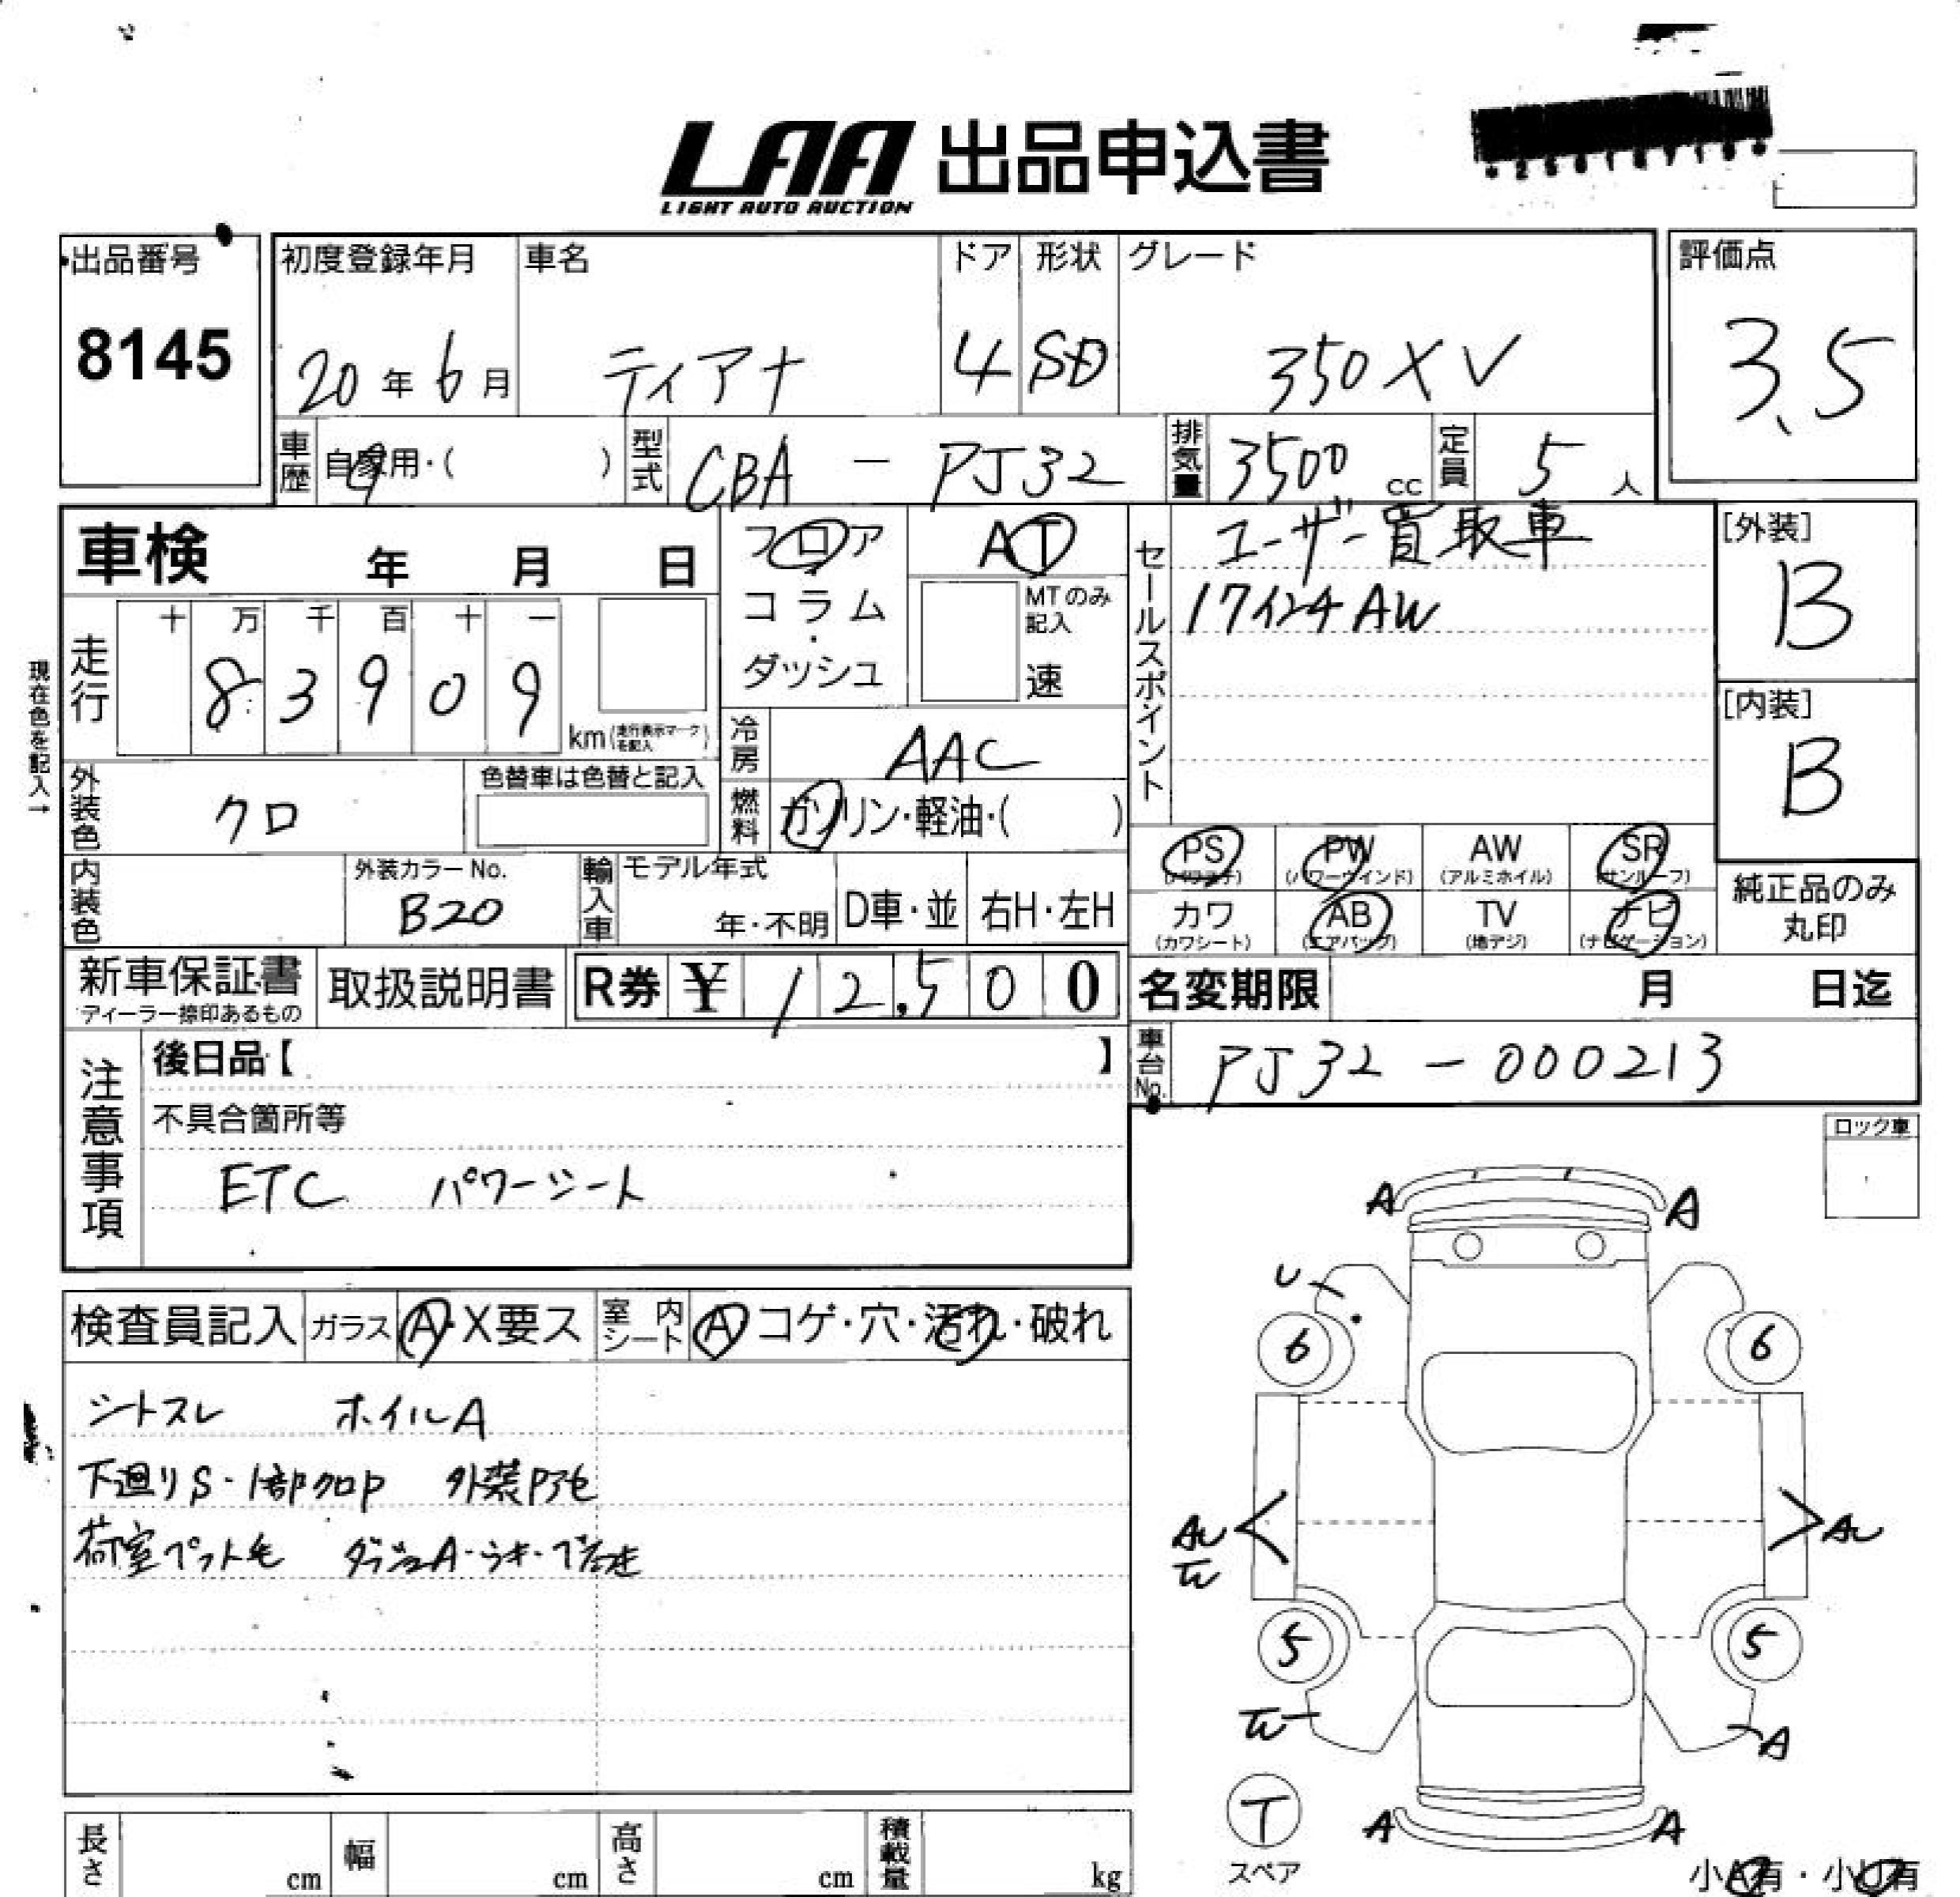 LAA 出品申込書
LIGHT AUTO AUCTION
出品番号
8145
初度登録年月
20年6月
車名
ティアナ
ドア
4
形状
SD
グレード
350XV
評価点
3.5
車歴
自家用・( )
型式
CBA - PJ32
排気量
3500 cc
定員
5 人
車検 年 月 日
フロア・
コラム・
ダッシュ
AT
MTのみ記入
速
セールスポイント
ユーザー買取車
17インチAW
[外装]
B
[内装]
B
現在色を記入→
走行
十 万 千 百 十 一
8 3 9 0 9
km(走行表示マークを記入)
冷房
AAC
燃料
ガソリン・軽油・( )
外装色
クロ
色替車は色替と記入
内装色
外装カラーNo.
B20
輸入車
モデル年式
年・不明
D車・並
右H・左H
PS
(パワステ)
PW
(パワーウインド)
AW
(アルミホイル)
SR
(サンルーフ)
カワ
(カワシート)
AB
(エアバッグ)
TV
(地デジ)
ナビ
(ナビゲーション)
純正品のみ
丸印
新車保証書
ディーラー捺印あるもの
取扱説明書
R券 ¥ 12,500
名変期限 月 日迄
車台No.
PJ32 - 000213
注意事項
後日品【 】
不具合箇所等
ETC パワーシート
ロック車
検査員記入
ガラス
A・X要ス
室内シート
A コゲ・穴・汚れ・破れ
シートスレ ホイルA
下廻りS・1部クロP 外装
荷室ペット毛
A A
U
6 6
AU AU
5 5
A
T
スペア
A A
小A有・小U有
長さ cm
幅 cm
高さ cm
積載量 kg